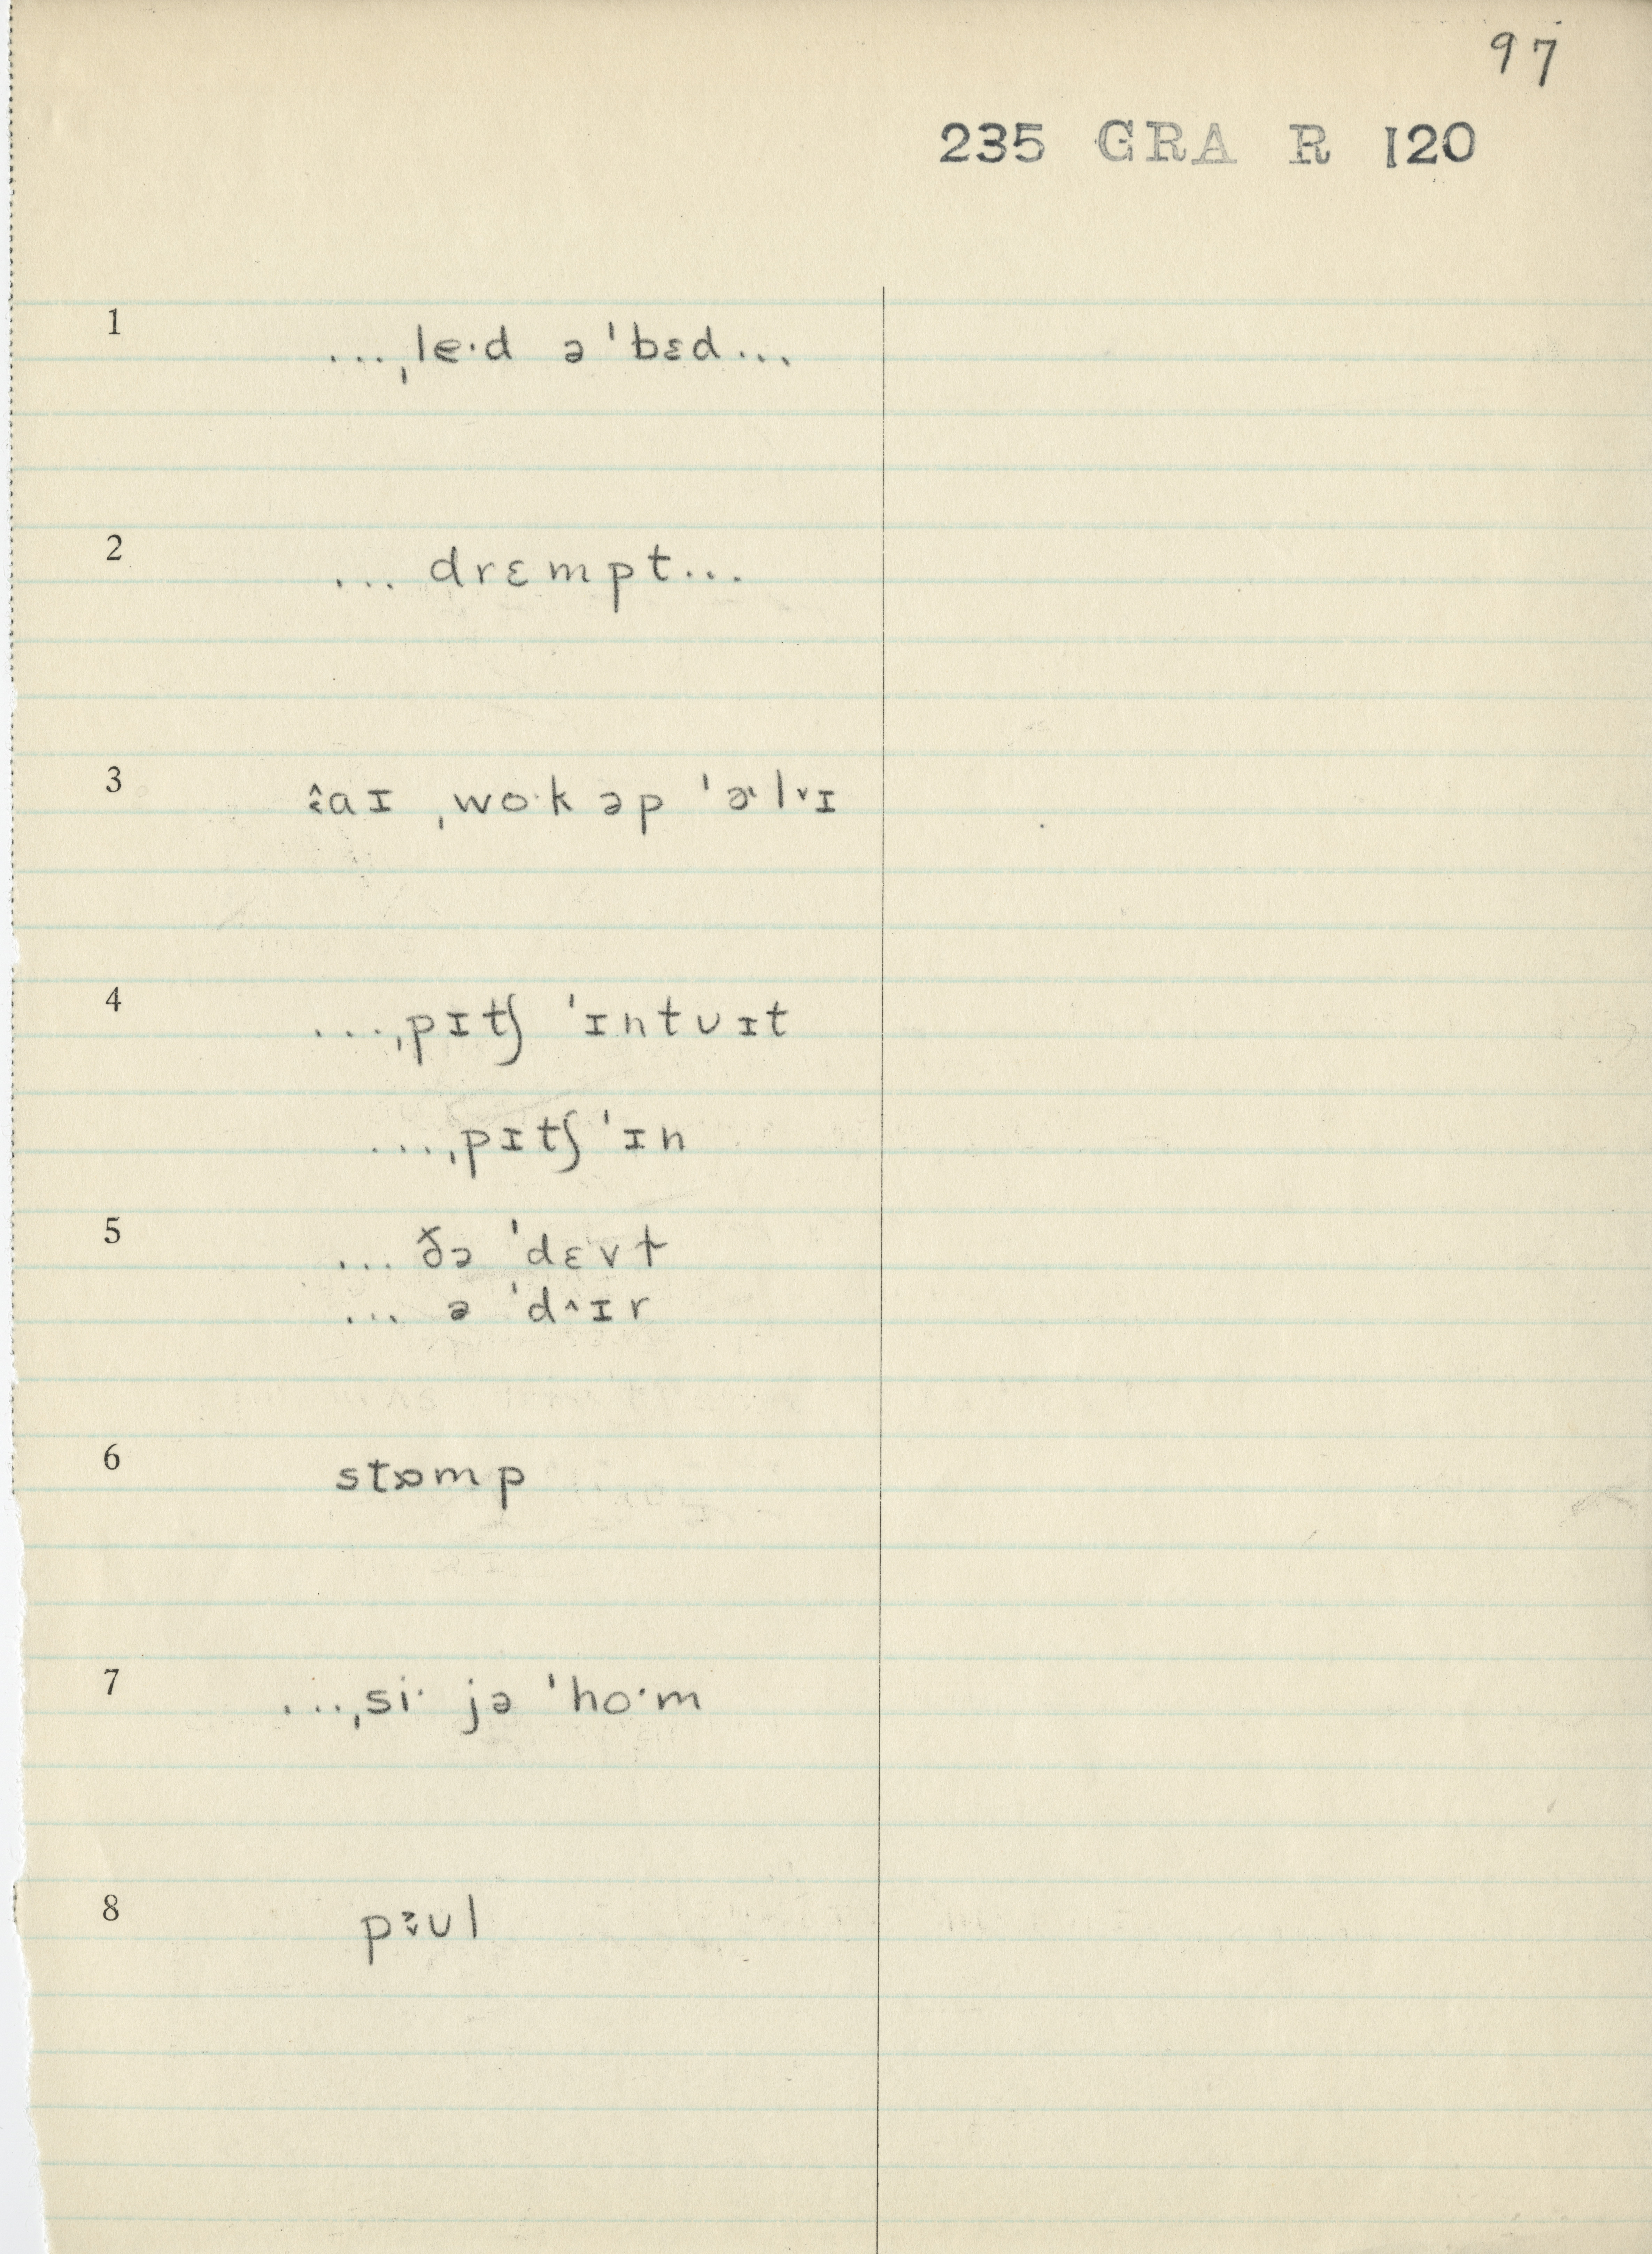 97
235 GRA R 120
1 ...ˌle·d ə ˈbɛd...
2 ... drɛmpt...
3 aɪ ˌwo·k əp ˈɚl˅ɪ
4 ...ˌpɪtʃ ˈɪntʊɪt
...ˌpɪtʃ ˈɪn
5 ... ðə ˈdɛvt
... ə ˈd^ɪr
6 stɒmp
7 ...ˌsi· jə ˈho·m
8